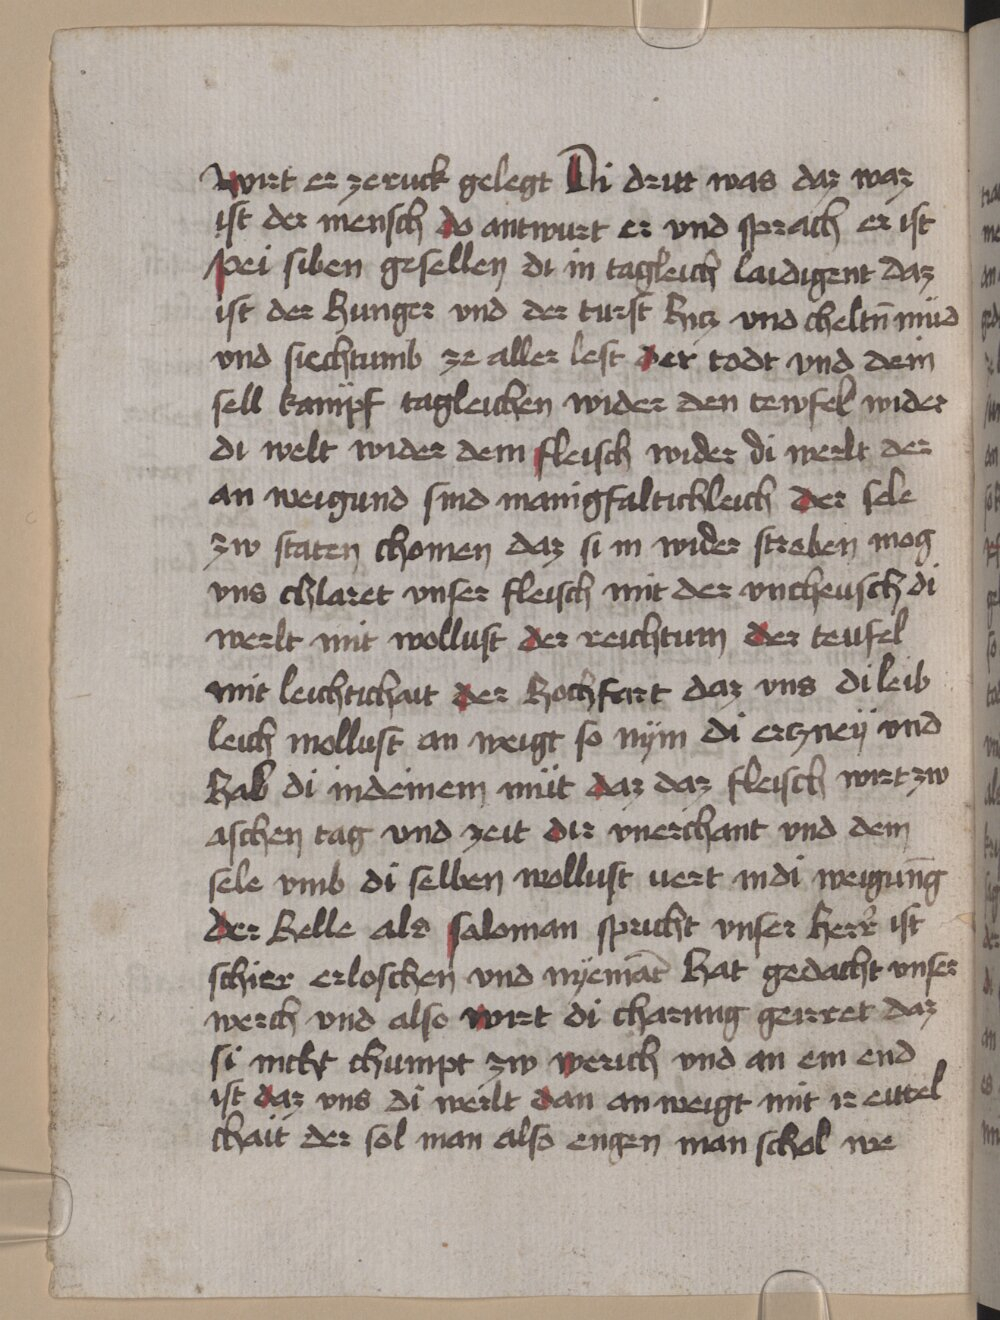 wirt er zeruck gelegt Di dritt was daz waz
ist der mensch do antwurt er vnd sprach er ist
pei siben gesellen di in tagleich laidigent daz
ist der hunger vnd der turst hicz vnd cheltn̄ müd
vnd siechtumb ze aller lest der todt vnd dein
sell kampf tagleichen wider den tewfel wider
di welt wider dem fleisch wider di werlt der
an weigund sind manigfaltichleich der sele
zw staten chomen daz si in wider streben mog
vns chlaret vnser fleisch mit der vncheusch di
werlt mit wollust der reichtum der teufel
mit leichtichait der hochfart daz vns di leib
leich wollust an weigt so nÿm di erczneÿ vnd
hab di in deinem müt daz daz fleisch wirt zw
aschen tag vnd zeit dir vnerchant vnd dein
sele vmb di selben wollust vert in di weigun̄g
der helle als saloman spricht vnser herr ist
schier erloschen vnd nÿemāt hat gedacht vnser
werch vnd also wirt di charung geirret daz
si nicht chumpt zw werich vnd an ein end
ist daz vns di werlt dan an weigt mit ir eittel
chait der sol man also engen man schol we